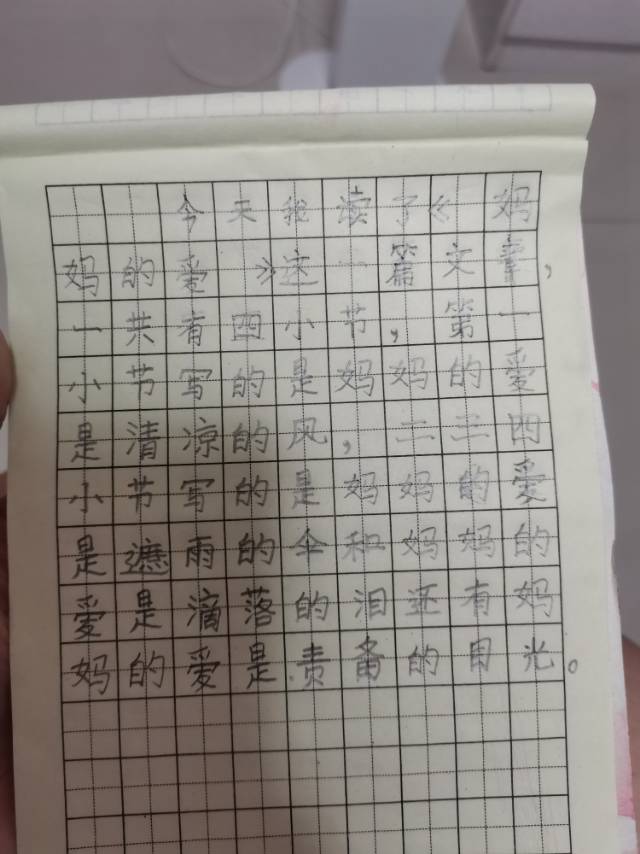 今天我读了《妈
妈的爱》这一篇文章，
一共有四小节，第一
小节写的是妈妈的爱
是清凉的风，二三四
小节写的是妈妈的爱
是遮雨的伞和妈妈的
爱是滴落的泪还有妈
妈的爱是责备的目光。